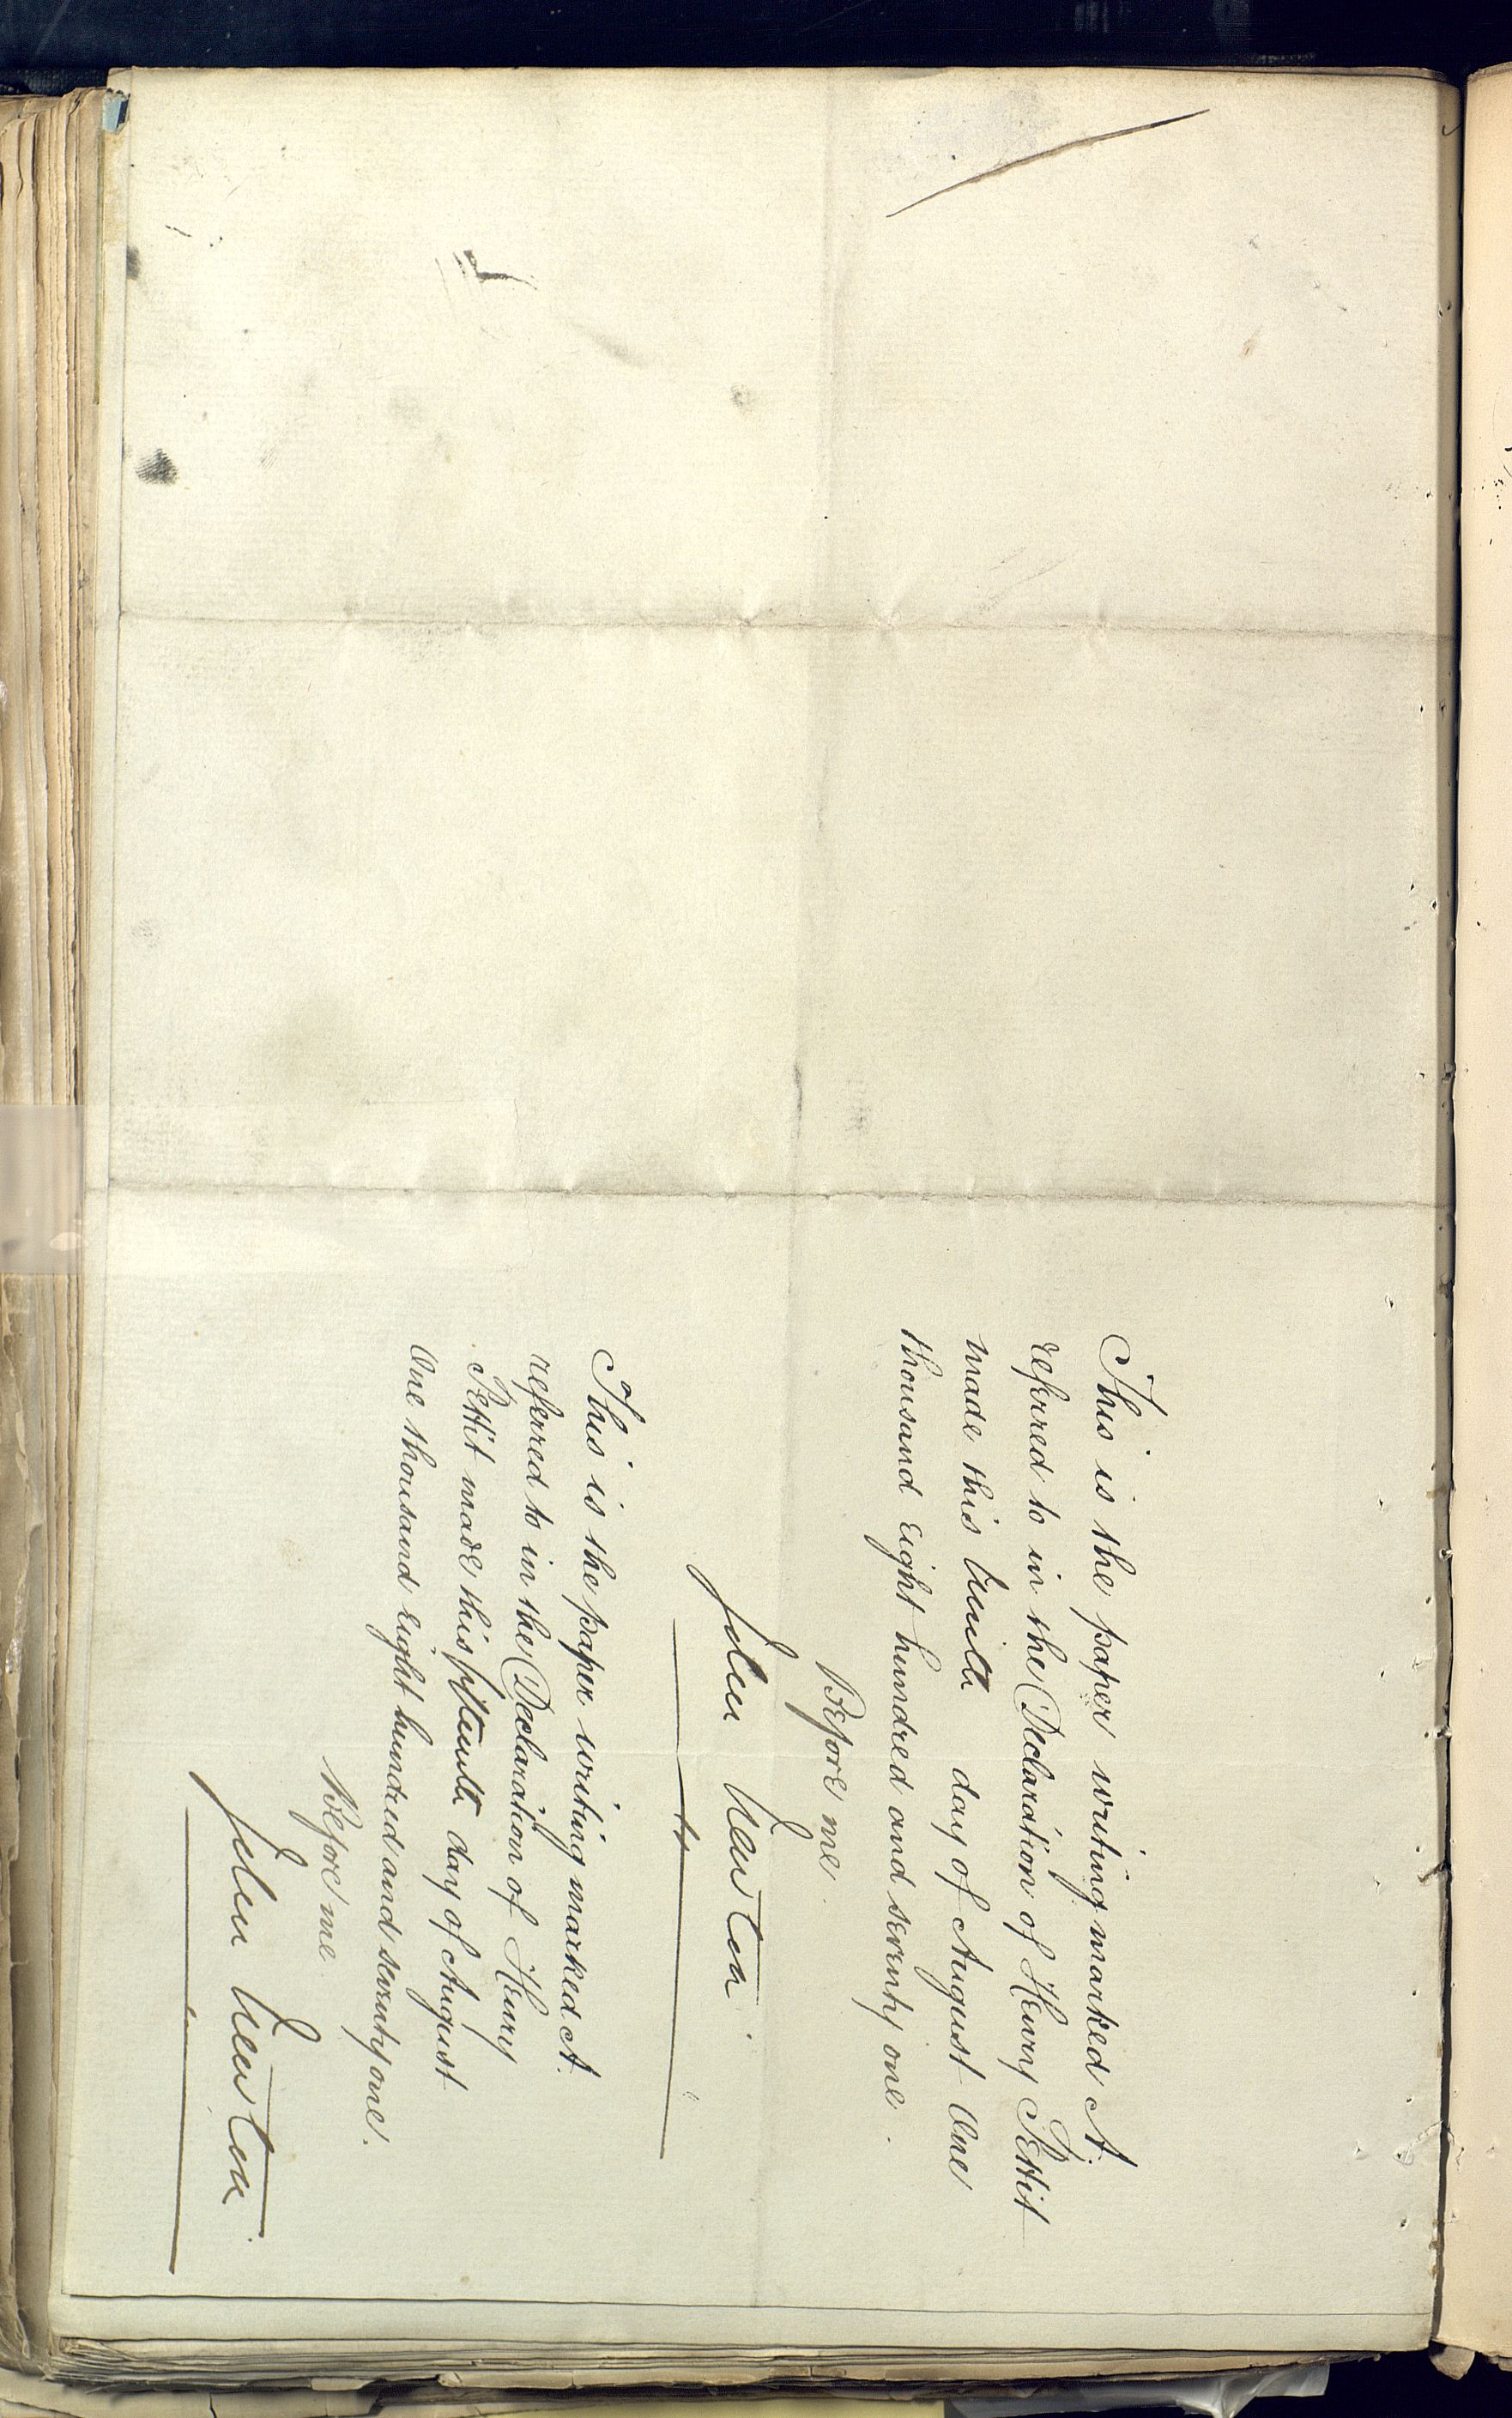 This is the paper writing marked A.
referred to in the Declaration of Henry Pettit
made this day of August One
thousand eight hundred and seventy one.
Before me.
John Newton
This is the paper writing marked A.
referred to in the Declaration of Henry
Pettit made this fifteenth day of August
One thousand eight hundred and seventy one.
Before me
John Newton